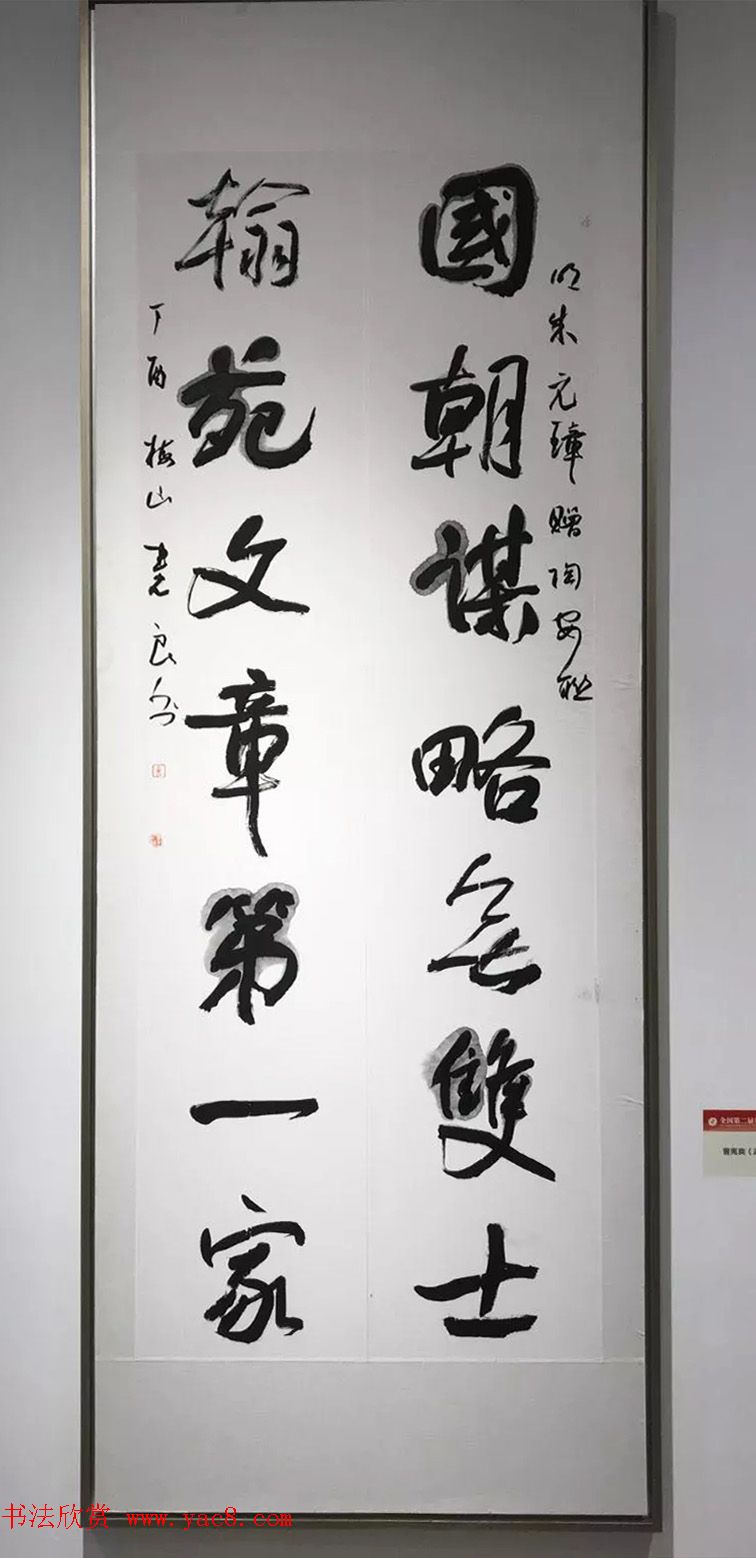 明朱元璋贈陶安联
國朝謀略無雙士
翰苑文章第一家
丁酉梅山堯良书
全国第二届
曾宪良
书法欣赏 www.yac8.com